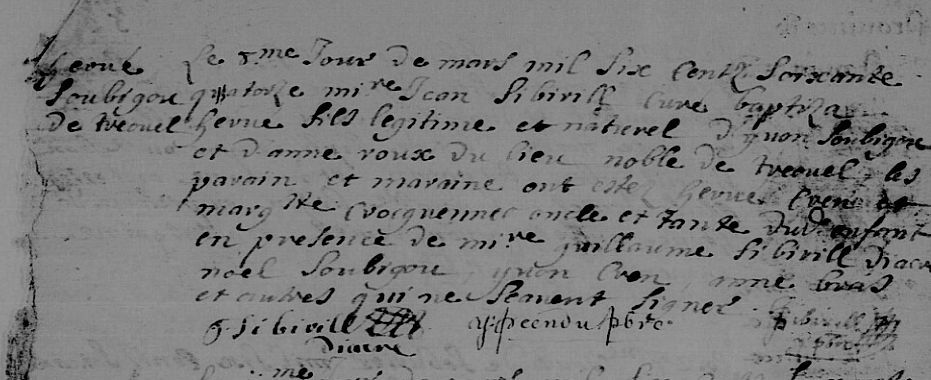 herve
Soubigou
de treouel
Le 5me Jour de mars mil six centz soixante
quatorze mire Jean Sibirill cure baptiza
herve fils legitime et naturel d'yvon Soubigou
et d'anne roux du lieu noble de treouel les
parain et maraine ont estez herve Cren et
margtte Crocquennec oncle et tante dud enfant
en presence de mire guillaume Sibirill diacre
noel Soubigou, yvon Cren, anne bras
et autres qui ne scavent signer
g Sibirill
diacre
pbre
Sibirill